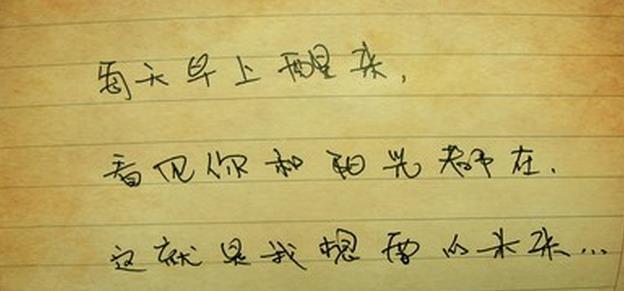 每天早上醒来，
看见你和阳光都在.
这就是我想要的未来...